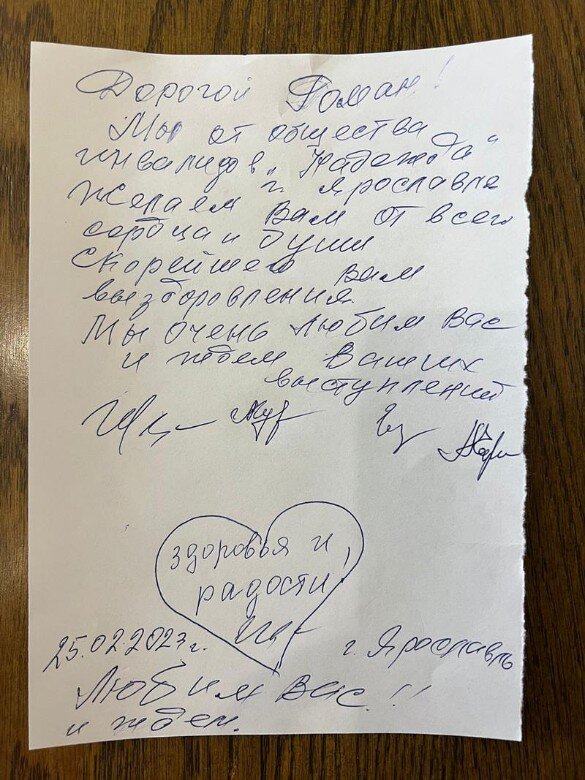 Дорогой Роман!
Мы от общества
инвалидов „Надежда"
г. Ярославля
желаем Вам от всего
сердца и души
скорейшего Вам
выздоровления.
Мы очень любим Вас
и ждем Ваших
выступлений
здоровья и
радости!
25.02.2023г.
г. Ярославль
Любим Вас!!
и ждем.